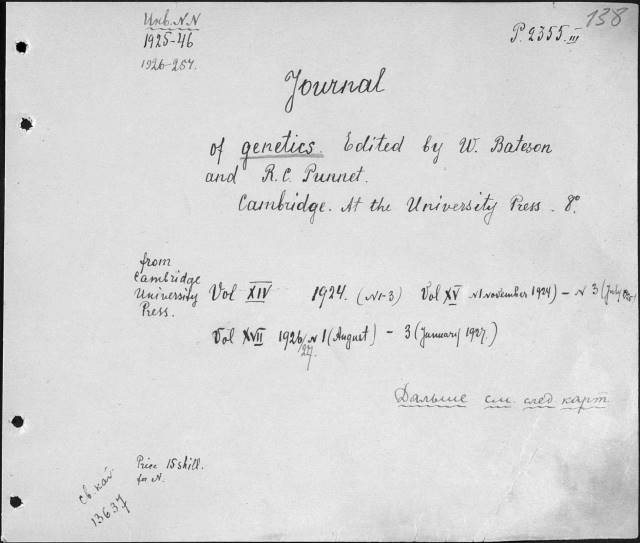 Инв. N.N
1925-46
1926-257.
P. 2355.III
138
Journal
of genetics. Edited by W. Bateson
and R.C. Punnet.
Cambridge. At the University Press. 8°.
from
Cambridge
University
Press.
Vol XIV 1924. (N1-3) Vol XV N1 november 1924) - N 3 (July
Vol XVII 1926/27. N 1 (August) - 3 (January 1927.)
Дальше см. след. карт.
Price 15 shill.
for N.
13637